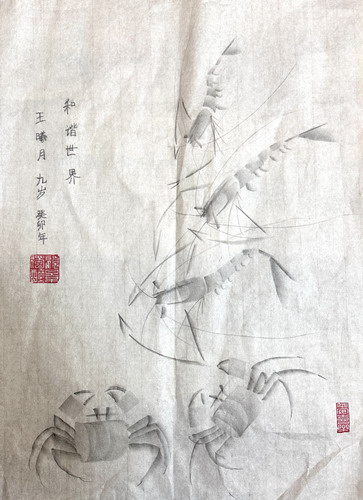 和谐世界
王曦月 九岁 癸卯年